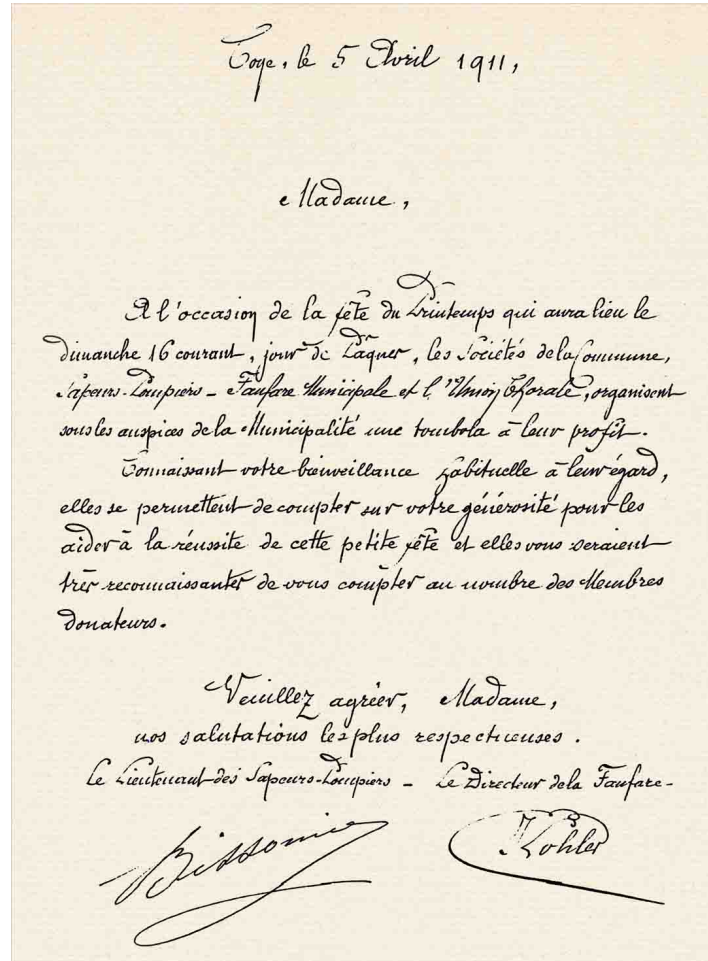 le 5 Avril 1911,
Madame,
A l'occasion de la fête du Printemps qui aura lieu le
dimanche 16 courant, jour de Pâques, les Sociétés de la Commune,
Sapeurs-Pompiers - Fanfare Municipale et l'Union Chorale, organisent
sous les auspices de la Municipalité une tombola à leur profit.
Connaissant votre bienveillance habituelle à leur égard,
elles se permettent de compter sur votre générosité pour les
aider à la réussite de cette petite fête et elles vous seraient
très reconnaissantes de vous compter au nombre des Membres
donateurs.
Veuillez agréer, Madame,
nos salutations les plus respectueuses.
Le Lieutenant des Sapeurs-Pompiers - Le Directeur de la Fanfare -
Kohler